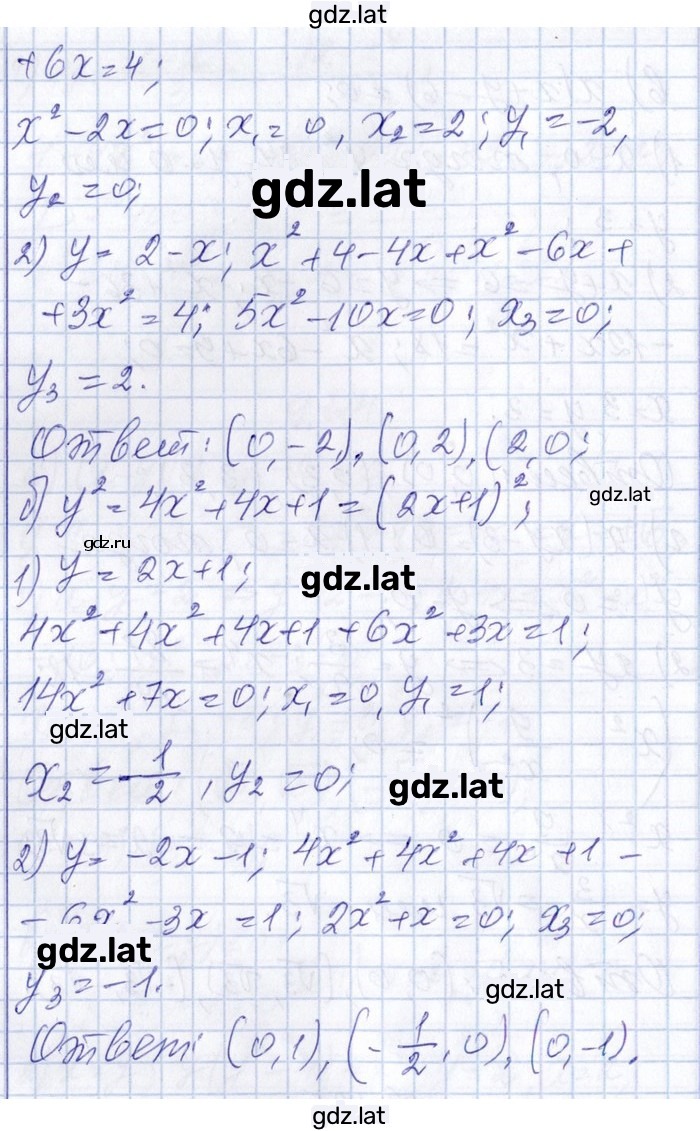 gdz.lat
+6x=4;
x²-2x=0; x₁=0, x₂=2; y₁=-2,
y₂=0;
gdz.lat
2) y=2-x; x²+4-4x+x²-6x+
+3x²=4; 5x²-10x=0; x₃=0;
y₃=2.
Ответ: (0,-2), (0,2), (2,0;
б) y²=4x²+4x+1=(2x+1)²;
gdz.lat
gdz.ru
1) y=2x+1;
gdz.lat
4x²+4x²+4x+1+6x²+3x=1;
14x²+7x=0; x₁=0, y₁=1;
gdz.lat
x₂=-1/2, y₂=0;
gdz.lat
2) y=-2x-1; 4x²+4x²+4x+1-
-6x²-3x=1; 2x²+x=0; x₃=0;
gdz.lat
y₃=-1.
gdz.lat
Ответ: (0,1), (-1/2,0), (0,-1).
gdz.lat